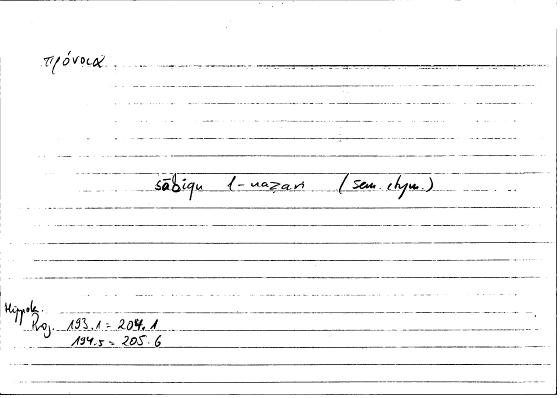 πρόνοια
sābiqu l-naẓari (sem. etym.)
Hippok.
Prog. 193.1 = 204.1
194.5 = 205.6